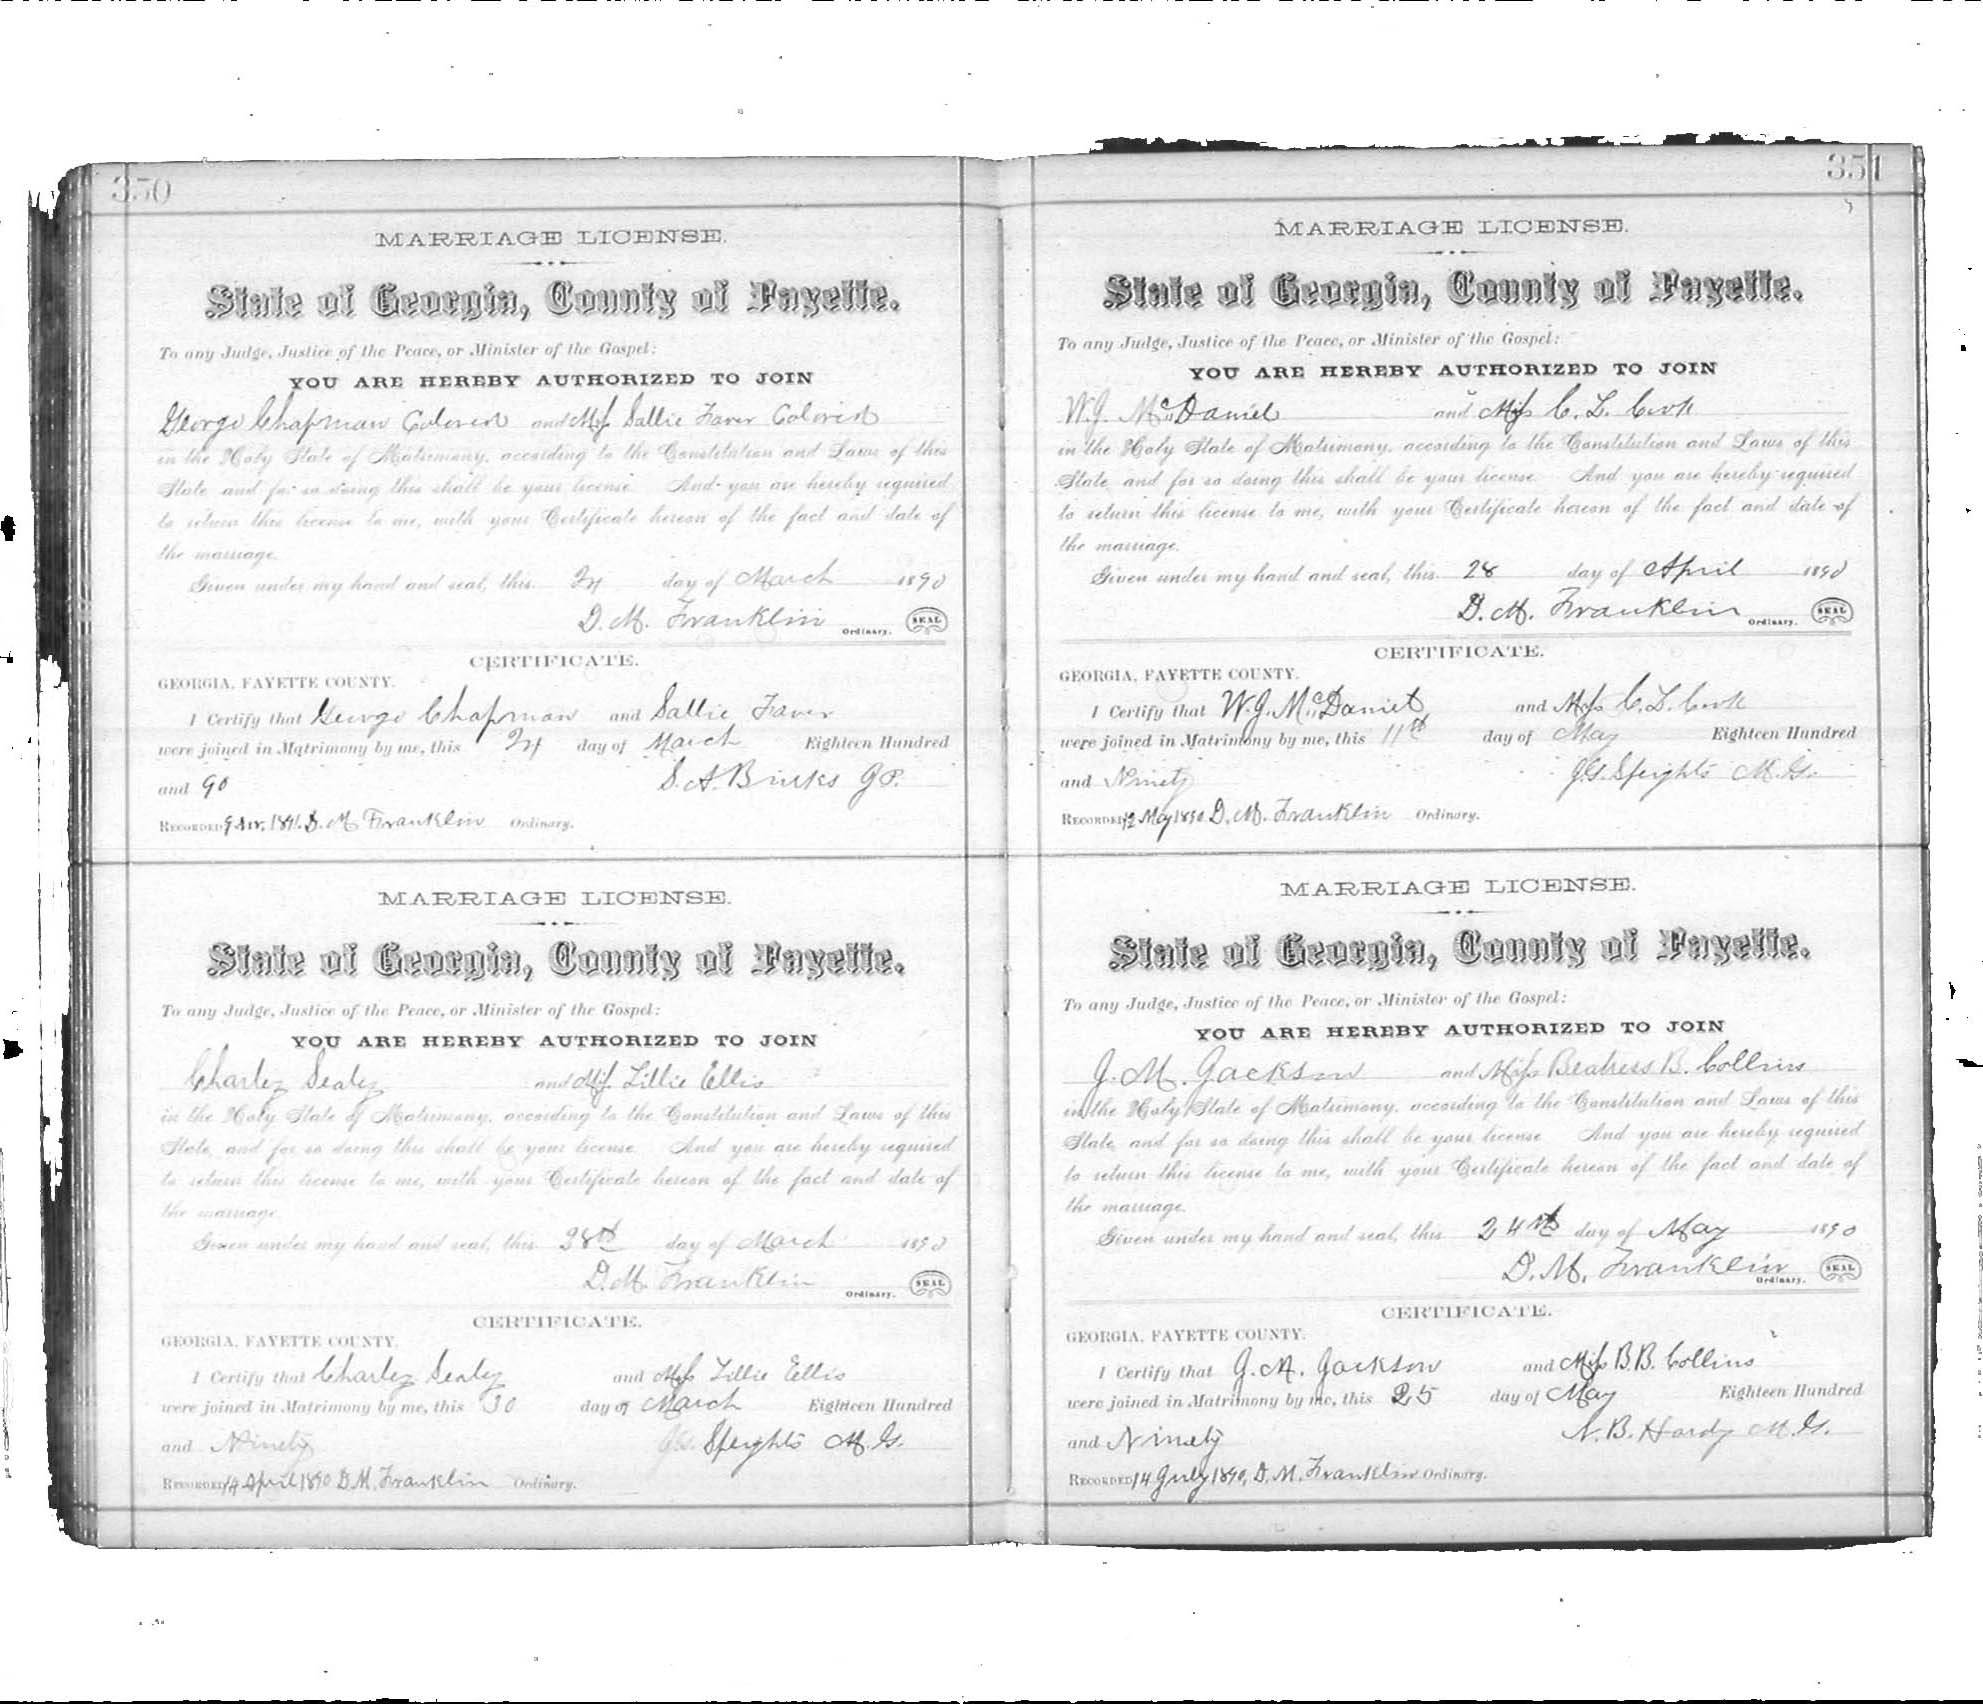 350
MARRIAGE LICENSE.
State of Georgia, County of Fayette.
To any Judge, Justice of the Peace, or Minister of the Gospel:
YOU ARE HEREBY AUTHORIZED TO JOIN
George Chapman Colored and Miss Sallie Faver Colored
in the Holy State of Matrimony, according to the Constitution and Laws of this
State and for so doing this shall be your license. And you are hereby required
to return this license to me, with your Certificate hereon of the fact and date of
the marriage.
Given under my hand and seal, this day of March 1890
D. M. Franklin Ordinary. SEAL
CERTIFICATE.
GEORGIA, FAYETTE COUNTY.
I Certify that George Chapman and Sallie Faver
were joined in Matrimony by me, this day of March Eighteen Hundred
and 90 S. A. J.P.
RECORDED 1891. D. M Franklin Ordinary.
MARRIAGE LICENSE.
State of Georgia, County of Fayette.
To any Judge, Justice of the Peace, or Minister of the Gospel:
YOU ARE HEREBY AUTHORIZED TO JOIN
Charley Sealey and Miss Lillie Ellis
in the Holy State of Matrimony, according to the Constitution and Laws of this
State, and for so doing this shall be your license. And you are hereby required
to return this license to me, with your Certificate hereon of the fact and date of
the marriage
Given under my hand and seal, this 28th day of March 1890
D. M. Franklin Ordinary. SEAL
CERTIFICATE.
GEORGIA, FAYETTE COUNTY.
I Certify that Charley Sealey and Miss Lillie Ellis
were joined in Matrimony by me, this 30 day of March Eighteen Hundred
and Ninety Speights M. G.
RECORDED 14 April 1890 D. M. Franklin Ordinary.
351
MARRIAGE LICENSE.
State of Georgia, County of Fayette.
To any Judge, Justice of the Peace, or Minister of the Gospel:
YOU ARE HEREBY AUTHORIZED TO JOIN
W. J. McDaniel and Miss C. L. Cook
in the Holy State of Matrimony, according to the Constitution and Laws of this
State and for so doing this shall be your license. And you are hereby required
to return this license to me, with your Certificate hereon of the fact and date of
the marriage.
Given under my hand and seal, this 28 day of April 1890
D. M. Franklin Ordinary. SEAL
CERTIFICATE.
GEORGIA, FAYETTE COUNTY.
I Certify that W. J. McDaniel and Miss C. L. Cook
were joined in Matrimony by me, this 11th day of May Eighteen Hundred
and Ninety Speights M. G.
RECORDED 12 May 1890 D. M. Franklin Ordinary.
MARRIAGE LICENSE.
State of Georgia, County of Fayette.
To any Judge, Justice of the Peace, or Minister of the Gospel:
YOU ARE HEREBY AUTHORIZED TO JOIN
J. M. Jackson and Miss Beatress B. Collins
in the Holy State of Matrimony, according to the Constitution and Laws of this
State, and for so doing this shall be your license. And you are hereby required
to return this license to me, with your Certificate hereon of the fact and date of
the marriage.
Given under my hand and seal, this 24th day of May 1890
D. M. Franklin Ordinary. SEAL
CERTIFICATE.
GEORGIA, FAYETTE COUNTY.
I Certify that J. M. Jackson and Miss B. B. Collins
were joined in Matrimony by me, this 25 day of May Eighteen Hundred
and Ninety N. B. Hardy M. G.
RECORDED 14 July 1890, D. M. Franklin Ordinary.